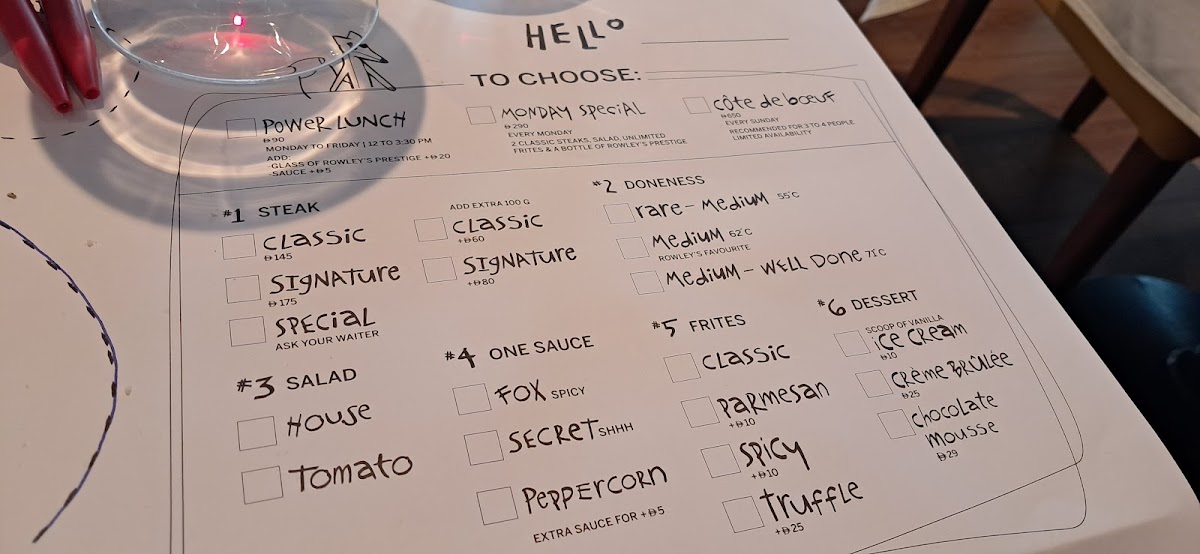 HELLO
TO CHOOSE:
POWER LUNCH
Đ90
MONDAY TO FRIDAY | 12 TO 3:30 PM
ADD:
-GLASS OF ROWLEY'S PRESTIGE +Đ20
-SAUCE +Đ5
MONDAY SPECIAL
Đ290
EVERY MONDAY
2 CLASSIC STEAKS, SALAD, UNLIMITED
FRITES & A BOTTLE OF ROWLEY'S PRESTIGE
CÔTE de BŒUF
Đ650
EVERY SUNDAY
RECOMMENDED FOR 3 TO 4 PEOPLE
LIMITED AVAILABILITY
#1 STEAK
CLASSIC
Đ145
SIGNATURE
Đ175
SPECIAL
ASK YOUR WAITER
ADD EXTRA 100 G
CLASSIC
+Đ60
SIGNATURE
+Đ80
#2 DONENESS
RARE - MEDIUM 55°C
MEDIUM 62°C
ROWLEY'S FAVOURITE
MEDIUM - WELL DONE 71°C
#3 SALAD
HOUSE
TOMATO
#4 ONE SAUCE
FOX SPICY
SECRET SHHH
PEPPERCORN
EXTRA SAUCE FOR +Đ5
#5 FRITES
CLASSIC
PARMESAN
+Đ10
SPICY
+Đ10
TRUFFLE
+Đ25
#6 DESSERT
SCOOP OF VANILLA
ICE CREAM
Đ10
CRÈME BRÛLÉE
Đ25
CHOCOLATE
MOUSSE
Đ29